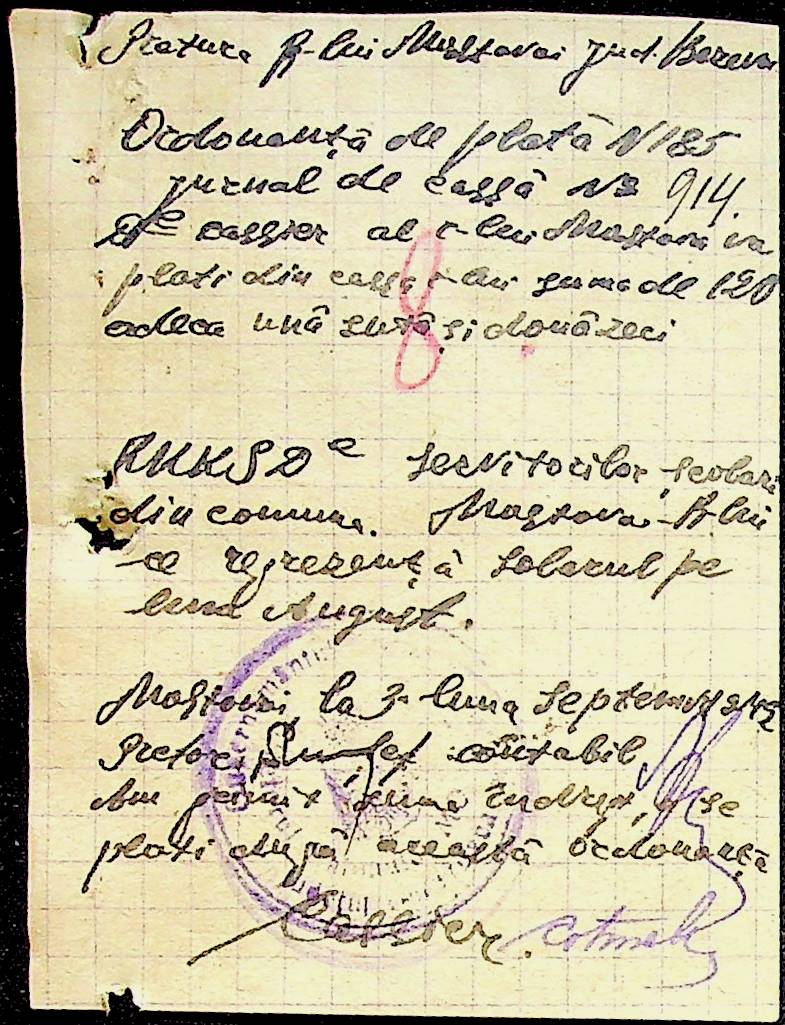 Pretura R-lui Mostovoi jud. Berezov
Ordonanță de plată N 185
jurnal de cassă No 914.
Dl cassier al r-lui Mostovoi va
plăti din cassa r-lui suma de 120
adeca ună sută și douăzeci
8
RKKS De servitorilor școlari
din comuna Mostovoi R-lui
ce reprezentă solarul pe
luna August.
Mostovoi, la 3 luna Septemvr 942
Pretor contabil
Am primit suma se
plati după această Ordonanță
Cassier